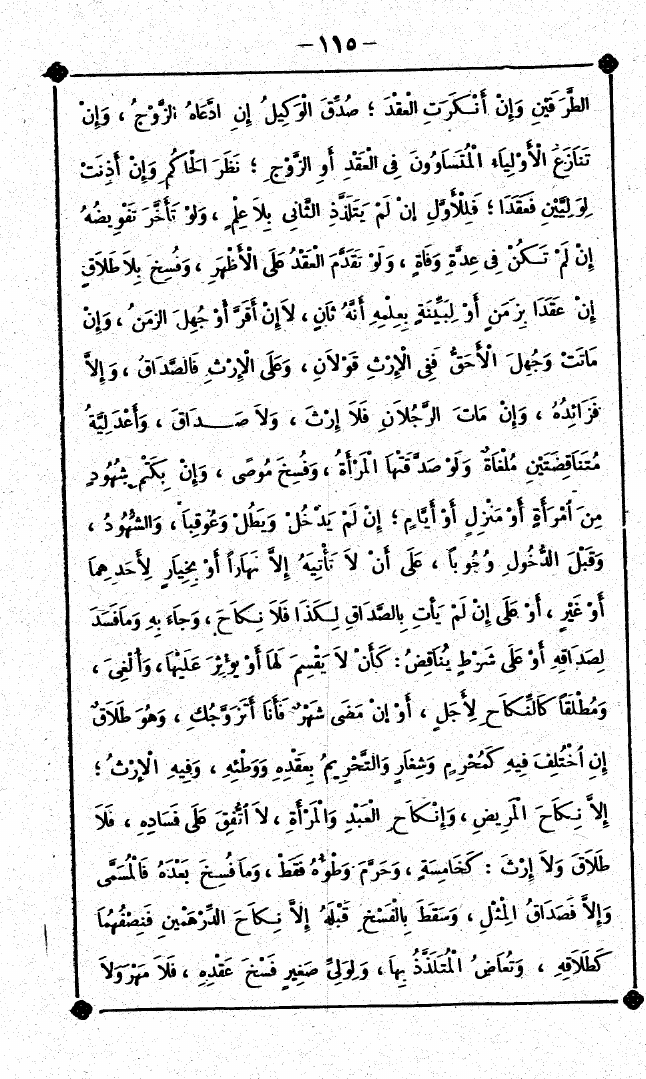 - ١١٥ -
الطَّرَفَيْنِ وَإِنْ أَنْكَرَتِ الْعَقْدَ ؛ صُدِّقَ الْوَكِيلُ إِنِ ادَّعَاهُ الزَّوْجُ ، وَإِنْ
تَنَازَعَ الْأَوْلِيَاءِ الْمُتَسَاوُونَ فِى الْعَقْدِ أَوِ الزَّوْجِ ؛ نَظَرَ الْحَاكِمُ وَإِنْ أَذِنَتْ
لِوَلِيَّيْنِ فَعَقَدَا ؛ فَلِلْأَوَّلِ إِنْ لَمْ يَتَلَذَّذِ الثَّانِى بِلاَ عِلْمٍ ، وَلَوْ تَأَخَّرَ تَفْوِيضُهُ
إِنْ لَمْ تَكُنْ فِى عِدَّةِ وَفَاةٍ ، وَلَوْ تَقَدَّمَ الْعَقْدُ عَلَى الْأَظْهَرِ ، وَفُسِخَ بِلاَ طَلاَقٍ
إِنْ عَقَدَا بِزَمَنٍ أَوْ لِبَيِّنَةٍ بِعِلْمِهِ أَنَّهُ ثَانٍ ، لاَ إِنْ أَقَرَّ أَوْ جُهِلَ الزمَنُ ، وَإِنْ
مَاتَتْ وَجُهِلَ الْأَحَقُّ فَفِى الْإِرْثِ قَوْلاَنِ ، وَعَلَى الْإِرْثِ فَالصَّدَاقُ ، وَإِلاَّ
فَزَائِدُهُ ، وَإِنْ مَاتَ الرَّجُلاَنِ فَلاَ إِرْثَ ، وَلاَ صَدَاقَ ، وَأَعْدَلِيَّةُ
مُتَنَاقِضَتَيْنِ مُلْغَاةٌ وَلَوْ صَدَّقَتْهَا الْمَرْأَةُ ، وَفُسِخَ مُوصًى ، وَإِنْ بِكَتْمِ شُهُودٍ
مِنَ امْرَأَةٍ أَوْ مَنْزِلٍ أَوْ أَيَّامٍ ؛ إِنْ لَمْ يَدْخُلْ وَيَطُلْ وَعُوقِبَا ، وَالشُّهُودُ ،
وَقَبْلَ الدُّخُولِ وُجُوباً ، عَلَى أَنْ لاَ تَأْتِيَهُ إِلاَّ نَهَاراً أَوْ بِخِيَارٍ لِأَحَدِهِمَا
أَوْ غَيْرٍ ، أَوْ عَلَى إِنْ لَمْ يَأْتِ بِالصَّدَاقِ لِكَذَا فَلاَ نِكَاحَ ، وَجَاءَ بِهِ وَمَا فَسَدَ
لِصَدَاقِهِ أَوْ عَلَى شَرْطٍ يُنَاقِضُ : كَأَنْ لاَ يَقْسِمَ لَهَا أَوْ يُؤْثِرَ عَلَيْهَا ، وَأُلْغِىَ ،
وَمُطْلَقاً كَالنِّكَاحِ لِأَجَلٍ ، أَوْ إِنْ مَضَى شَهْرٌ فَأَنَا أَتَزَوَّجُكِ ، وَهُوَ طَلاَقٌ
إِنِ اخْتُلِفَ فِيهِ كَمُحْرِمٍ وَشِغَارٍ وَالتَّحْرِيمُ بِعَقْدِهِ وَوَطْئِهِ ، وَفِيهِ الْإِرْثُ ؛
إِلاَّ نِكَاحَ الْمَرِيضِ ، وَإِنْكَاحِ الْعَبْدِ وَالْمَرْأَةِ ، لاَ اتُّفِقَ عَلَى فَسَادِهِ ، فَلاَ
طَلاَقَ وَلاَ إِرْثَ : كَخَامِسَةٍ ، وَحَرَّمَ وَطْؤُهُ فَقَطْ ، وَمَا فُسِخَ بَعْدَهُ فَالْمُسَمَّى
وَإِلاَّ فَصَدَاقُ الْمِثْلِ ، وَسَقَطَ بِالْفَسْخِ قَبْلَهُ إِلاَّ نِكَاحَ الدِّرْهَمَيْنِ فَنِصْفُهُمَا
كَطَلاَقِهِ ، وَتُعَاضُ الْمُتَلَذَّذُ بِهَا ، وَلِوَلِىِّ صَغِيرٍ فَسْخُ عَقْدِهِ ، فَلاَ مَهْرَ وَلاَ